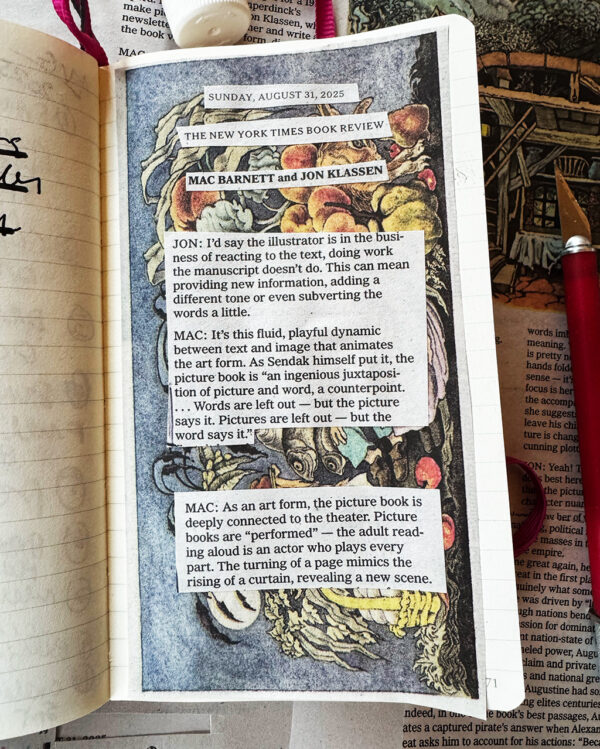 SUNDAY, AUGUST 31, 2025
THE NEW YORK TIMES BOOK REVIEW
MAC BARNETT and JON KLASSEN
JON: I'd say the illustrator is in the busi-
ness of reacting to the text, doing work
the manuscript doesn't do. This can mean
providing new information, adding a
different tone or even subverting the
words a little.
MAC: It's this fluid, playful dynamic
between text and image that animates
the art form. As Sendak himself put it, the
picture book is “an ingenious juxtaposi-
tion of picture and word, a counterpoint.
. . . Words are left out — but the picture
says it. Pictures are left out — but the
word says it.”
MAC: As an art form, the picture book is
deeply connected to the theater. Picture
books are “performed” — the adult read-
ing aloud is an actor who plays every
part. The turning of a page mimics the
rising of a curtain, revealing a new scene.
71
make pi
newslette
the book v
MAC:
on Klassen, w
her and write a
words imb
meaning.
is pretty n
hands folde
sense — it's
focus is her
the accomp
she suggest
leave his chi
ture is chang
cunning plott
ON: Yeah! T
does best here
that the pictur
character nuan
ber of
masses in t
e empire.
he great again, he
eat in the first pla
uinely what som
was driven by
gh nations bend
ssion for dominat
nt nation-state of
neled power, Augu
claim and private
s and national gre
Augustine had so
ing elites centuries
ndeed, in one the book's best passages, A
ates a captured pirate's answer when Alexan
eat asks him to account for his actions: “Bec